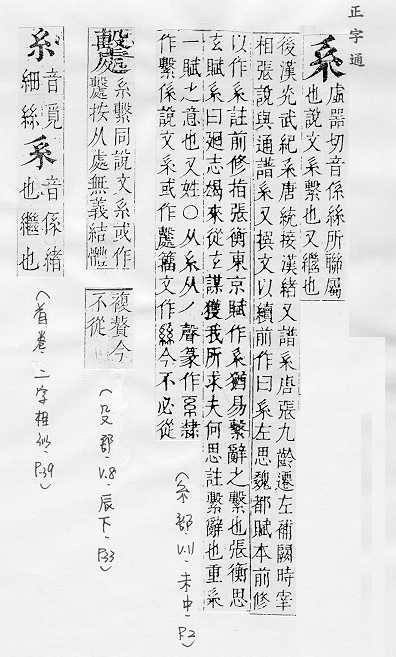 正字通
系
虛器切音係絲所聯屬
也說文系繫也又繼也
後漢光武紀系唐統接漢緒又譜系唐張九齡遷左補闕時宰
相張說與通譜系又撰文以續前作曰系左思魏都賦本前修
以作系註前修指張衡東京賦作系猶易繫辭之繫也張衡思
玄賦系曰廻志朅來從玄謀獲我所求夫何思註繫辭也重系
一賦之意也又姓○从糸从丿聲篆作系隸
作繫係說文系或作𣫦籒文作絲今不必從
(糸部.V.11.未中.P2)
𣫦
系繫同說文系或作
𣫦按从處無義結體
複贅今
不從
(殳部.V.8.辰下.P33)
糸
音覓
細絲
系
音係緒
也繼也
(首卷.二字相似.P39)